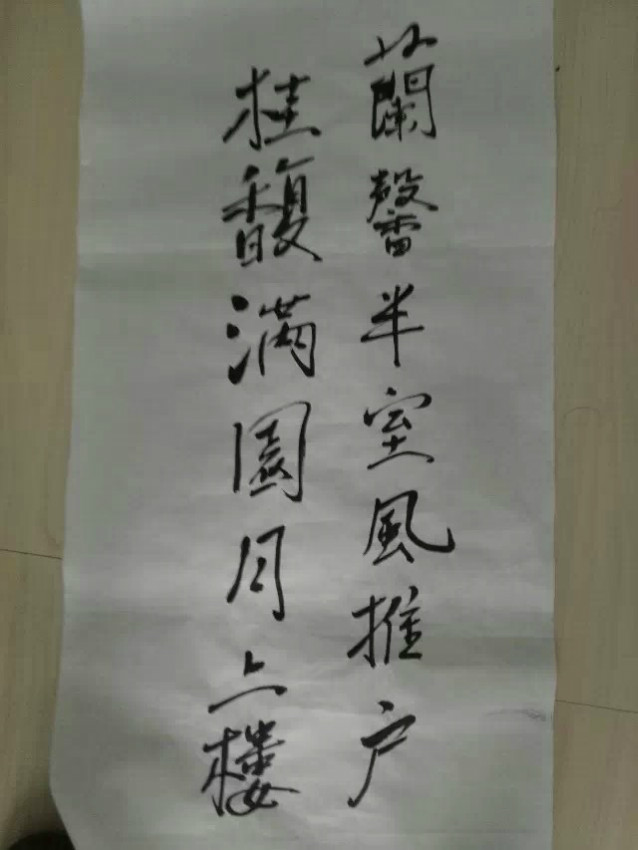 蘭馨半室風推户
桂馥滿園月上樓